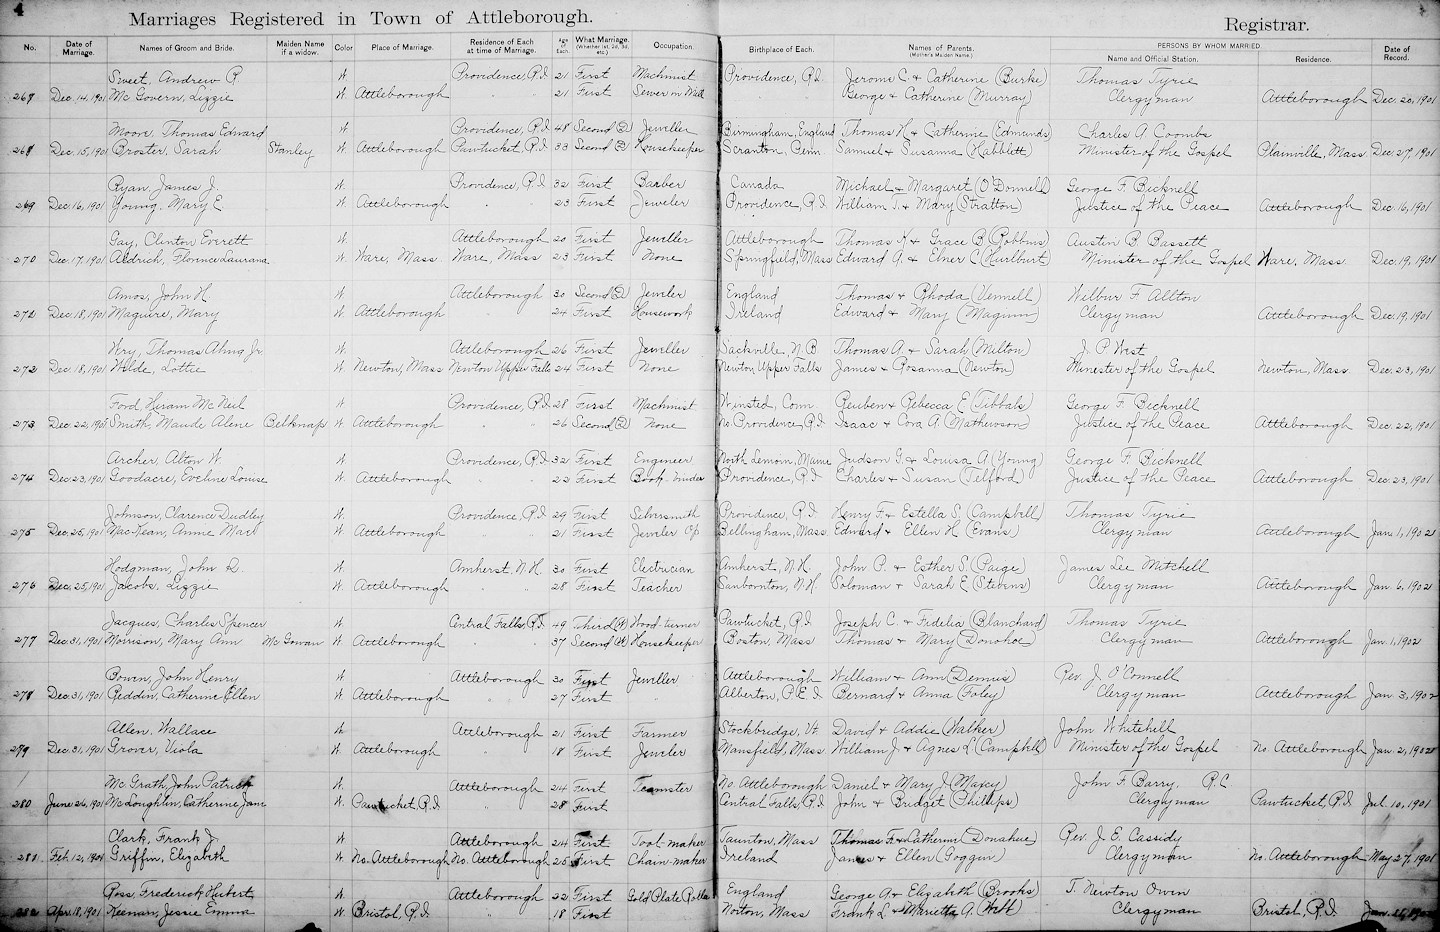 4
Marriages Registered in Town of Attleborough.
Registrar.
No. Date of Marriage. Names of Groom and Bride. Maiden Name if a widow. Color Place of Marriage. Residence of Each at time of Marriage. Age of Each. What Marriage. (Whether 1st, 2d, 3d, etc.) Occupation. Birthplace of Each. Names of Parents. (Mother's Maiden Name.) PERSONS BY WHOM MARRIED. Name and Official Station. Residence. Date of Record.
Sweet, Andrew R. W. Providence, R.I. 21 First Machinist Providence, R.I. Jerome C. & Catherine (Burke) Thomas Tyrie
267 Dec. 14, 1901 McGovern, Lizzie W. Attleborough " " 21 First Sewer in Mill George & Catherine (Murray) Clergyman Attleborough Dec. 20, 1901
Moore, Thomas Edward W. Providence, R.I. 48 Second (D) Jeweller Birmingham, England Thomas H. & Catherine (Edmunds) Charles A. Coombs
268 Dec. 15, 1901 Broster, Sarah Stanley W. Attleborough Pawtucket, R.I. 33 Second (D) Housekeeper Scranton, Penn. Samuel & Susanna (Habblett) Minister of the Gospel Plainville, Mass. Dec. 27, 1901
Ryan, James J. W. Providence, R.I. 32 First Barber Canada Michael & Margaret (O'Donnell) George F. Bicknell
269 Dec. 16, 1901 Young, Mary E. W. Attleborough " " 23 First Jeweler Providence, R.I. William T. & Mary (Stratton) Justice of the Peace Attleborough Dec. 16, 1901
Gay, Clinton Everett W. Attleborough 20 First Jeweller Attleborough Thomas K. & Grace B. (Robbins) Austin B. Bassett
270 Dec. 17, 1901 Aldrich, Florence Laurana W. Ware, Mass. Ware, Mass. 23 First None Springfield, Mass. Edward A. & C. (Hurlburt) Minister of the Gospel Ware, Mass. Dec. 19, 1901
Amos, John H. W. Attleborough 30 Second (D) Jeweler England Thomas & Rhoda (Vennell) Wilbur F. Allton
272 Dec. 18, 1901 Maguire, Mary W. Attleborough " 24 First Housework Ireland Edward & Mary (Maguinn) Clergyman Attleborough Dec. 19, 1901
Wry, Thomas Jr. W. Attleborough 26 First Jeweller Sackville, N.B. Thomas A. & Sarah (Milton) J. P. West
272 Dec. 18, 1901 Wilde, Lottie W. Newton, Mass. Newton Upper Falls 24 First None Newton Upper Falls James & Rosanna (Newton) Minister of the Gospel Newton, Mass. Dec. 23, 1901
Ford, Hiram McNeil W. Providence, R.I. 28 First Machinist Winsted, Conn. Reuben & Rebecca E. (Tibbals) George F. Bicknell
273 Dec. 22, 1901 Smith, Maude Alene Belknap W. Attleborough " " 26 Second (D) None No. Providence, R.I. Isaac & Cora A. (Mathewson) Justice of the Peace Attleborough Dec. 22, 1901
Archer, Alton W. W. Providence, R.I. 32 First Engineer North Maine Judson G. & Louisa A. (Young) George F. Bicknell
274 Dec. 23, 1901 Goodacre, Eveline Louise W. Attleborough " 22 First Book-binder Providence, R.I. Charles & Susan (Telford) Justice of the Peace Attleborough Dec. 23, 1901
Johnson, Clarence Dudley W. Providence, R.I. 29 First Silversmith Providence, R.I. Henry F. & Estella S. (Campbell) Thomas Tyrie
275 Dec. 25, 1901 MacKean, Annie W. Attleborough " " 21 First Jeweler Op. Bellingham, Mass. Edward & Ellen H. (Evans) Clergyman Attleborough Jan. 1, 1902
Hodgman, John D. W. Amherst, N.H. 30 First Electrician Amherst, N.H. John P. & Esther S. (Paige) James Lee Mitchell
276 Dec. 25, 1901 Jacobs, Lizzie W. Attleborough " " 28 First Teacher Sanbornton, N.H. Soloman & Sarah E. (Stevens) Clergyman Attleborough Jan. 6, 1902
Jacques, Charles Spencer W. Central Falls, R.I. 49 Third (W) Wood-turner Pawtucket, R.I. Joseph C. & Fidelia (Blanchard) Thomas Tyrie
277 Dec. 31, 1901 Morrison, Mary Ann McGowan W. Attleborough " " 37 Second (W) Housekeeper Boston, Mass. Thomas & Mary (Donohoe) Clergyman Attleborough Jan. 1, 1902
Bowen, John Henry W. Attleborough 30 First Jeweller Attleborough William & Ann (Demius) Rev. J. O'Connell
278 Dec. 31, 1901 Reddin, Catherine Ellen W. Attleborough " 27 First Alberton, P.E.I. Bernard & Anna (Foley) Clergyman Attleborough Jan. 3, 1902
Allen, Wallace W. Attleborough 21 First Farmer Stockbridge, Vt. David & Addie (Walker) John Whitehill
279 Dec. 31, 1901 Grover, Viola W. Attleborough " 18 First Jeweler Mansfield, Mass. William J. & Agnes L. (Campbell) Minister of the Gospel No. Attleborough Jan. 2, 1902
McGrath, John Patrick W. Attleborough 24 First Teamster No. Attleborough Daniel & Mary J. (Maxcy) John F. Barry, R.C.
280 June 26, 1901 McLoughlin, Catherine Jane W. Pawtucket, R.I. " 28 First Central Falls, R.I. John & Bridget (Phillips) Clergyman Pawtucket, R.I. Jul. 10, 1901
Clark, Frank J. W. Attleborough 24 First Tool-maker Taunton, Mass. Thomas F. & Catherine (Donahue) Rev. J. E. Cassidy
281 Feb. 12, 1901 Griffin, Elizabeth W. No. Attleborough No. Attleborough 25 First Chain-maker Ireland James & Ellen (Goggin) Clergyman No. Attleborough May 27, 1901
Ross, Frederick Hubert W. Attleborough 22 First Gold Plate Roller England George A. & Elizabeth (Brooks) T. Newton Owen
282 Apr. 18, 1901 Keenan, Jessie Emma W. Bristol, R.I. " 18 First Norton, Mass. Frank L. & Marietta A. Clergyman Bristol, R.I. Jan.